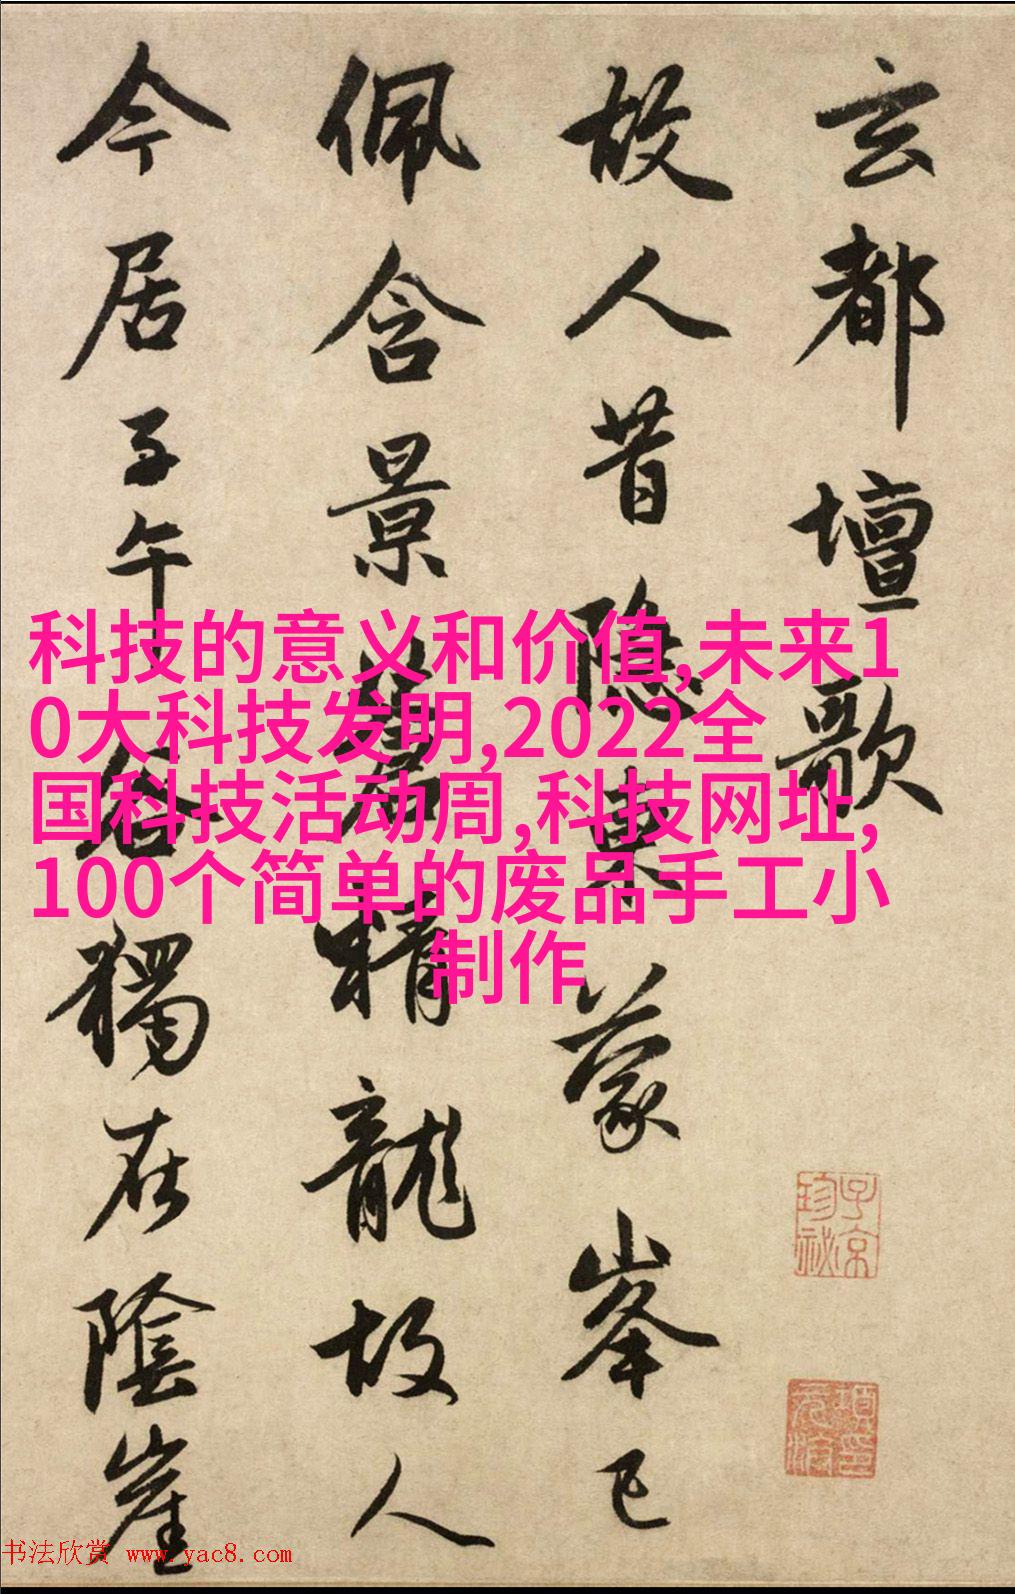 玄都壇歌
故人昔隱東蒙峯已
佩含景蒼精龍故人
今居子午谷獨在陰崖
科技的意义和价值,未来1
0大科技发明,2022全
国科技活动周,科技网址,
100个简单的废品手工小
制作
子京
珍祕
项元汴印
书法欣赏 www.yac8.com